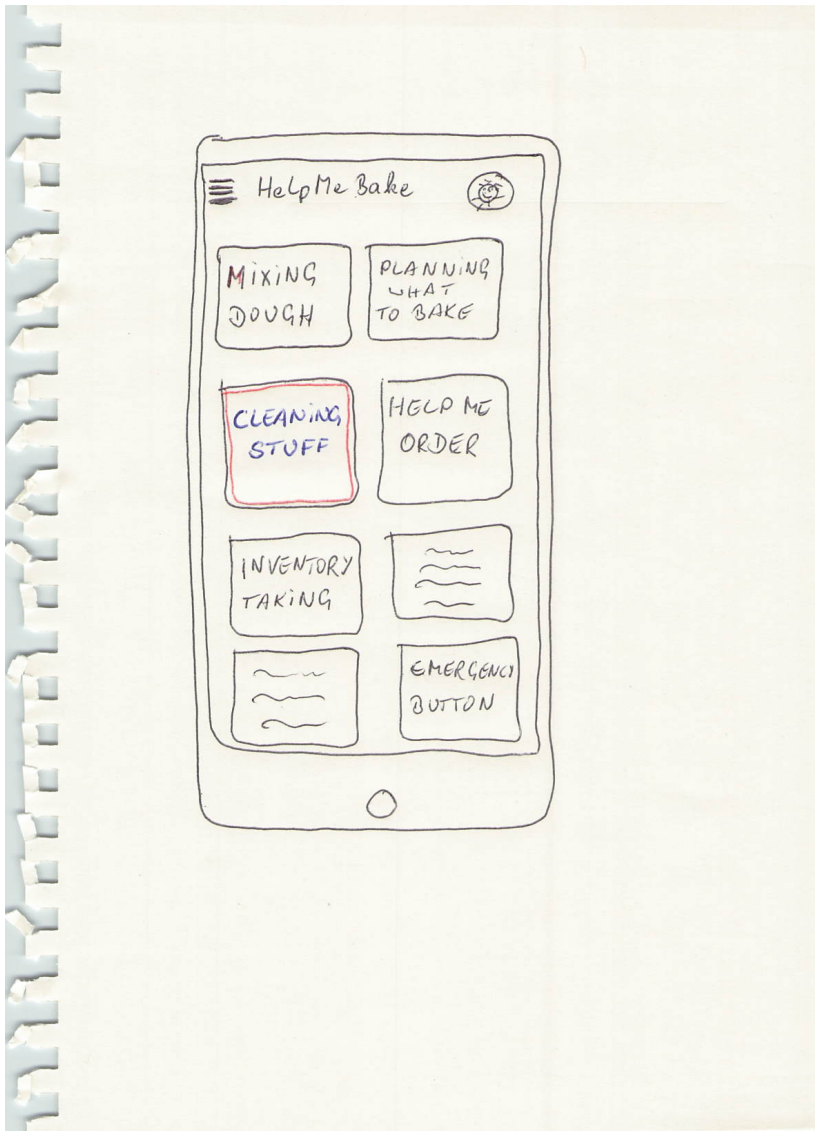 HelpMe Bake
MixiNG
DOUGH
PLANNiNG
WHAT
TO BAKE
CLEANiNG
STUFF
HELP ME
ORDER
INVENTORY
TAKiNG
EMERGENCY
BUTTON